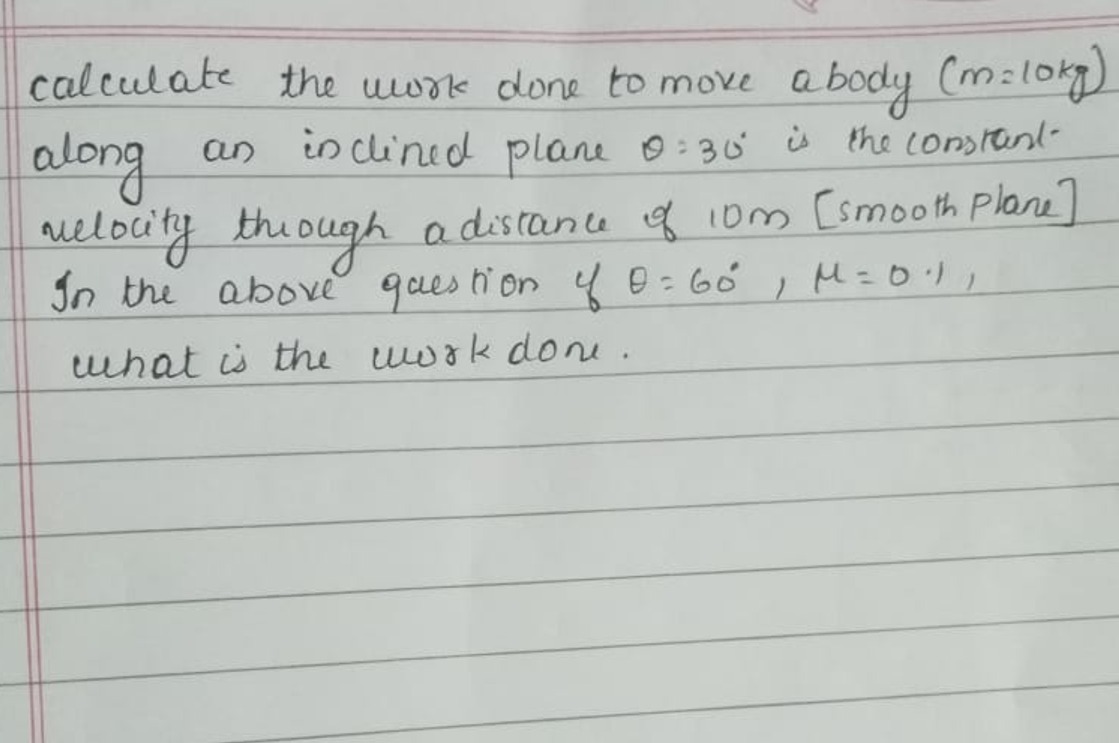 calculate the work done to move a body (m=10kg)
along an inclined plane θ=30° is the constant
velocity through a distance of 10m [smooth plane]
In the above question if θ=60°, μ=0.1,
what is the work done.